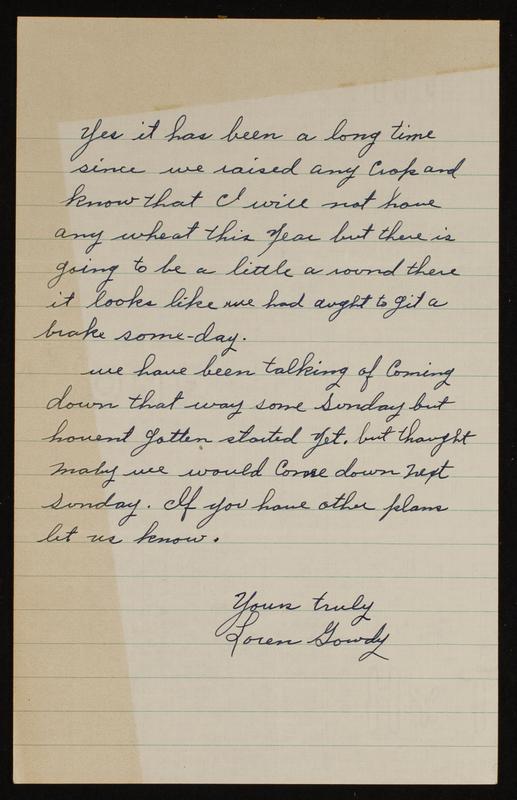 Yes it has been a long time
since we raised any Crop and
know that I will not have
any wheat this Year but there is
going to be a little a round there
it looks like we had aught to git a
brake some-day.
we have been talking of Coming
down that way some Sunday but
havent gotten started Yet. but thought
maby we would Come down next
Sunday. If you have other plans
let us know.
Yours truly
Loren Gowdy